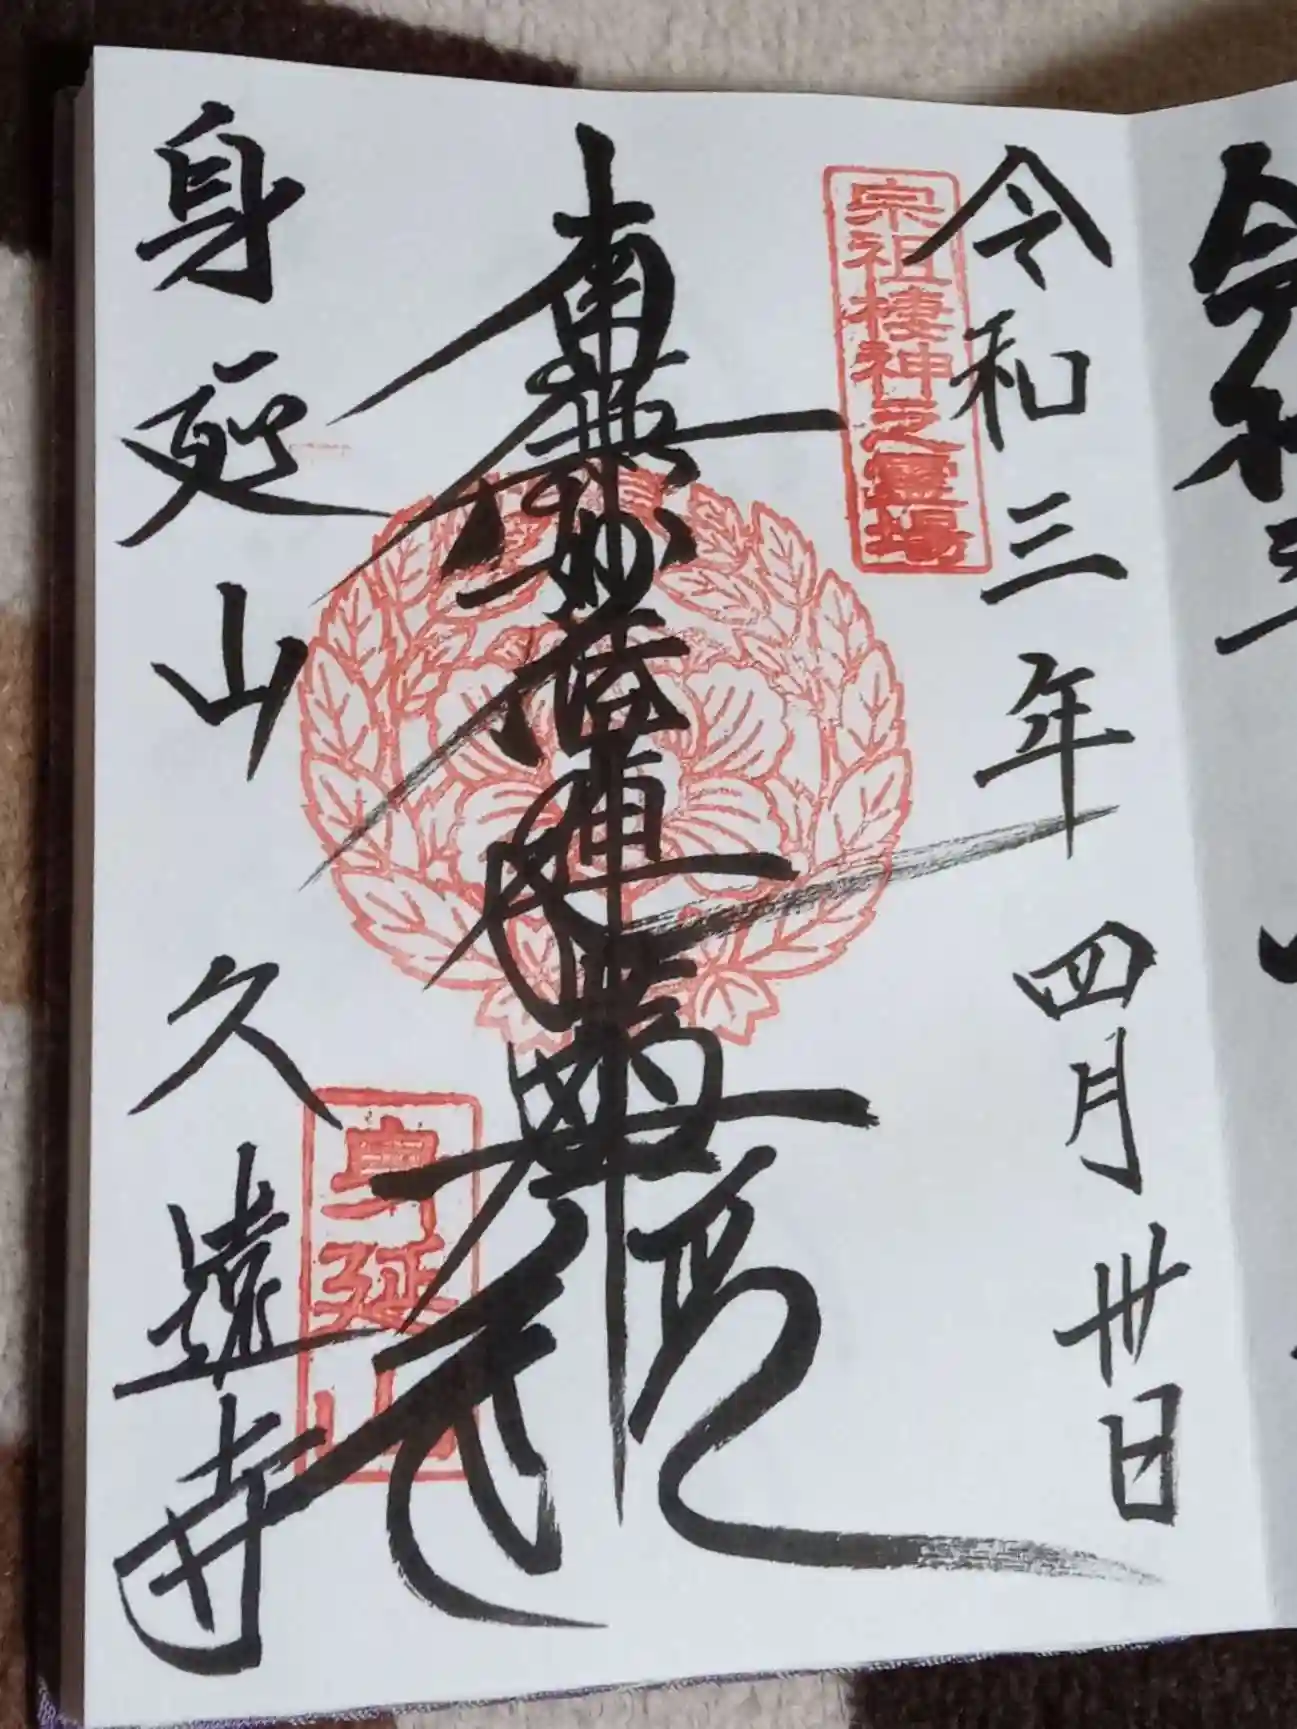 令和三年四月卅日
宗祖棲神之霊場
南無妙法蓮華経
身延山
身延山久遠寺